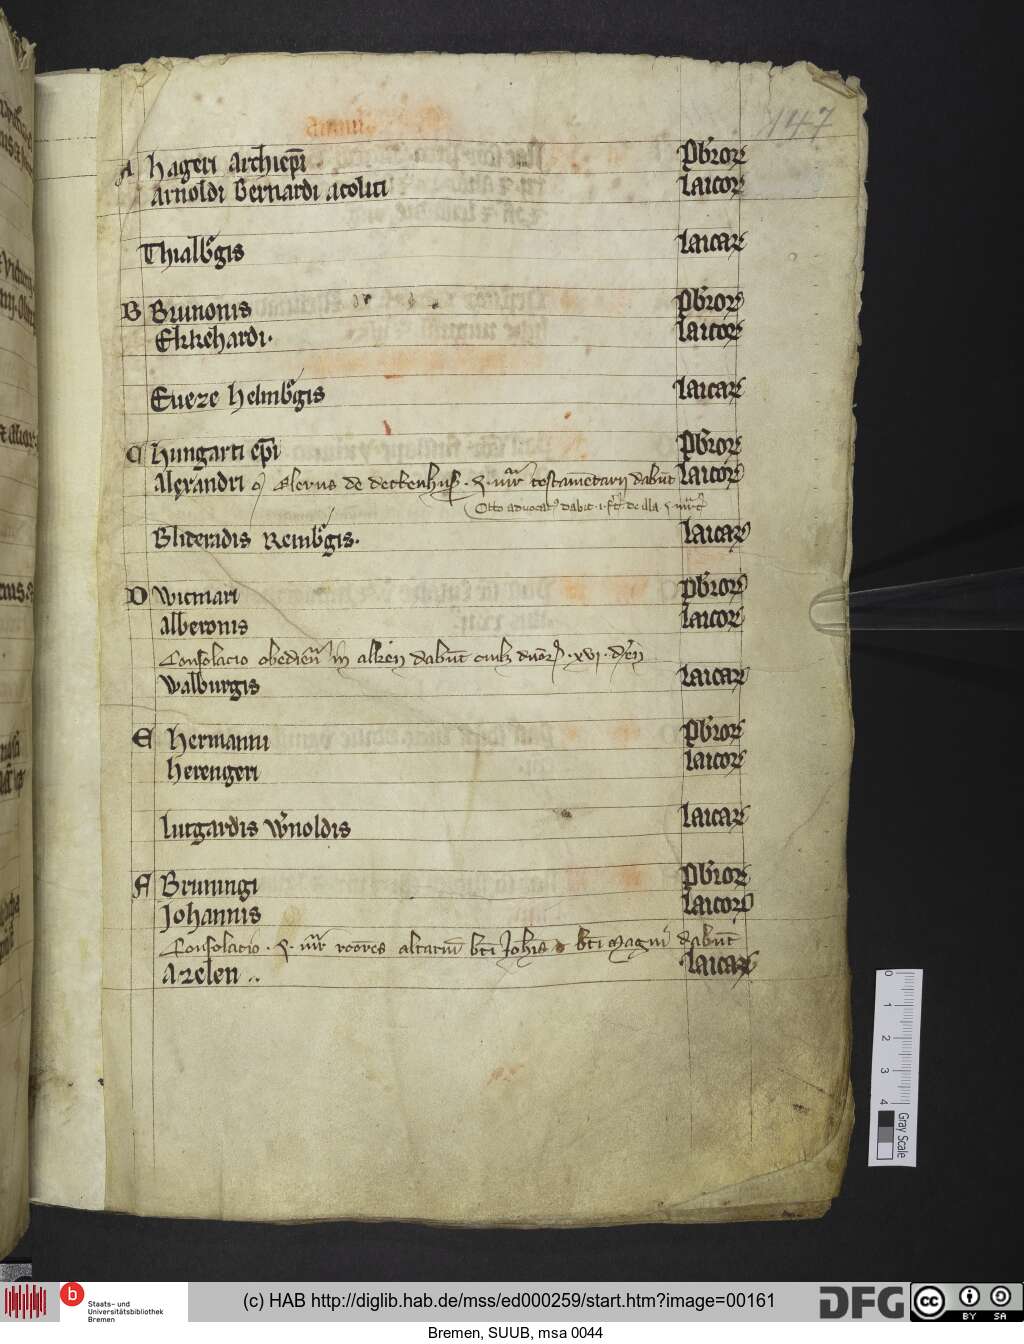 147
A Hageri Archiep̄i p̄b'ror
Arnoldi Bernardi acoliti laicor
Thialb'gis laicar
B Brunonis p̄b'ror
Ekkehardi. laicor
Eueze Helmb'gis laicar
C Hungarti ep̄i p̄b'ror
Alexandri o᷒ Alerus de deckenhus̄ . s. m̄r testamētarij dabūt laicor
Otto advocat᷒ dabit . i . de illa
Gliteradis Reinb'gis. laicar
D Wicmari p̄b'ror
alberonis laicor
Consolacio obediēn in alken dabūt duor . xvi . den̄
Walburgis laicar
E Hermanni p̄b'ror
Herengeri laicor
Lutgardis W'noldis laicar
F Bruningi p̄b'ror
Johannis laicor
Consolacio . s. m̄r rcores altariū bt̄i Joh̄is & bt̄i Magni dabūt
Azelen .. laicar
0 1 2 3 4
Gray Scale
b Staats- und Universitätsbibliothek Bremen
(c) HAB http://diglib.hab.de/mss/ed000259/start.htm?image=00161
DFG
cc BY SA
Bremen, SUUB, msa 0044